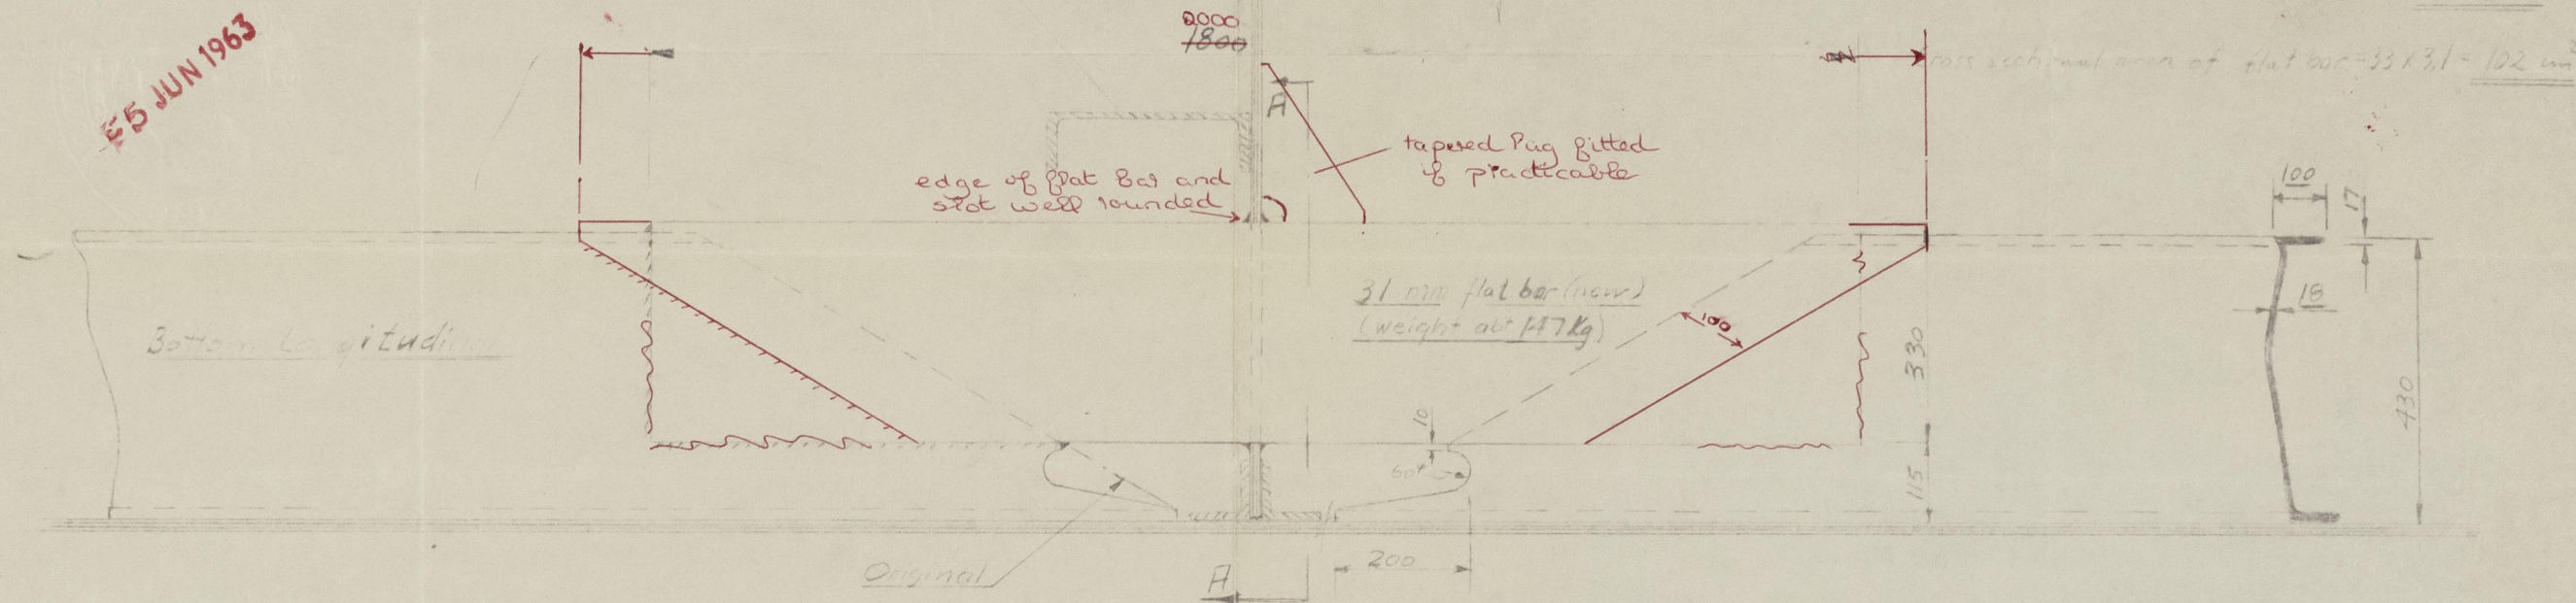 5 JUN 1963
2000
1800
cross sectional area of flat bar = 33 x 3,1 = 102 cm²
A
tapered lug fitted
if practicable
edge of flat bar and
slot well rounded
100
17
31 mm flat bar (new)
(weight abt 147 Kg)
18
Bottom Longitudinal
100
330
430
10
60
115
Original
200
A